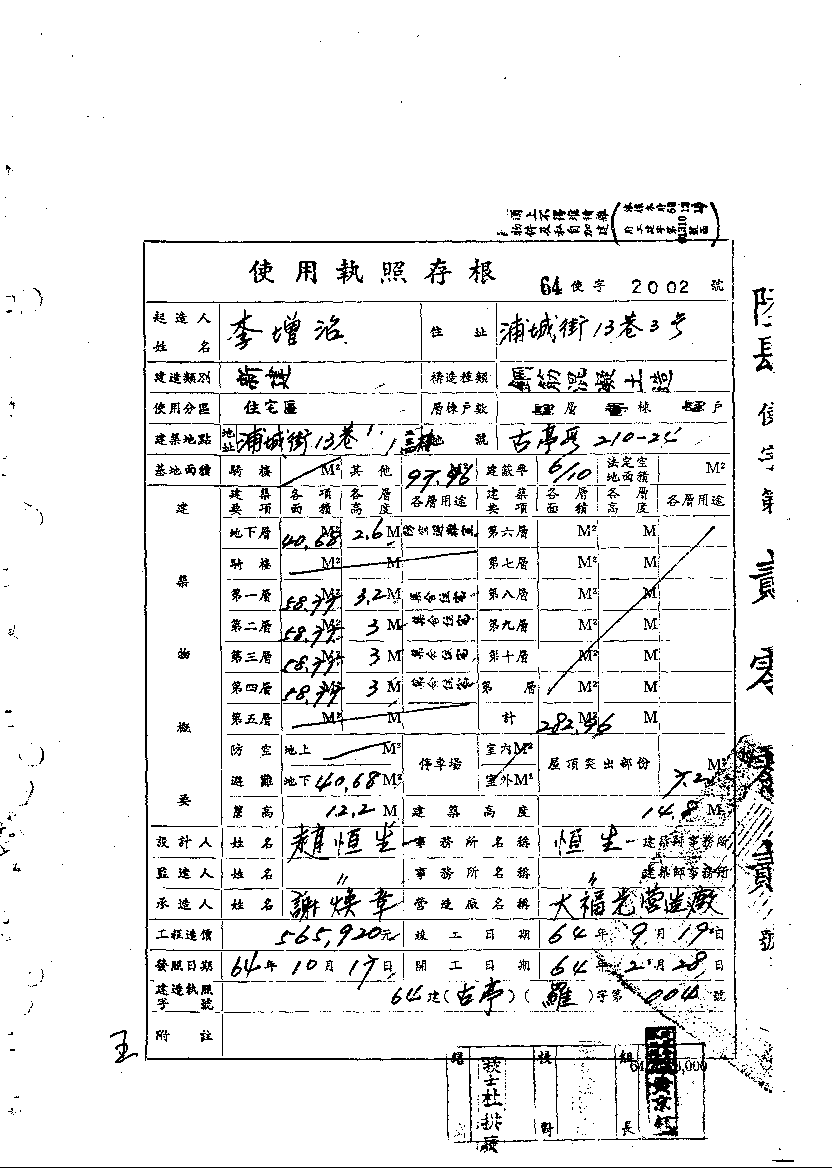 使用執照存根 64使字2002號
起造人姓名 李增治 住址 浦城街13巷3号
建造類別 新建 構造種類 鋼筋混凝土造
使用分區 住宅區 層棟戶數 層 棟 戶
建築地點 地址 浦城街13巷 地號 古亭 210-25
基地面積 騎樓 M² 其他 97.96 建蔽率 6/10 法定空地面積 M²
建築物概要
建築要項 各項面積 各層高度 各層用途 建築要項 各層面積 各層高度 各層用途
地下層 40.68 M² 2.6 M 第六層 M² M
騎樓 M² M 第七層 M² M
第一層 58.77 M² 3.2 M 集合住宅 第八層 M² M
第二層 58.77 M² 3 M 集合住宅 第九層 M² M
第三層 58.77 M² 3 M 集合住宅 第十層 M² M
第四層 58.77 M² 3 M 集合住宅 第 層 M² M
第五層 M² M 計 282.96 M²
防空避難 地上 M² 停車場 室內M² 屋頂突出部份 M²
地下 40.68 M² 室外M² 7.2
簷高 12.2 M 建築高度 14.8 M
設計人 姓名 趙恒生 事務所名稱 恒生 建築師事務所
監造人 姓名 〃 事務所名稱 〃 建築師事務所
承造人 姓名 謝煥章 營造廠名稱 大福光營造廠
工程造價 565,920元 竣工日期 64年9月19日
發照日期 64年10月17日 開工日期 64年2月28日
建造執照字號 64建(古亭)(羅)字第004號
附註
王
貳零零貳
號
校對
組長